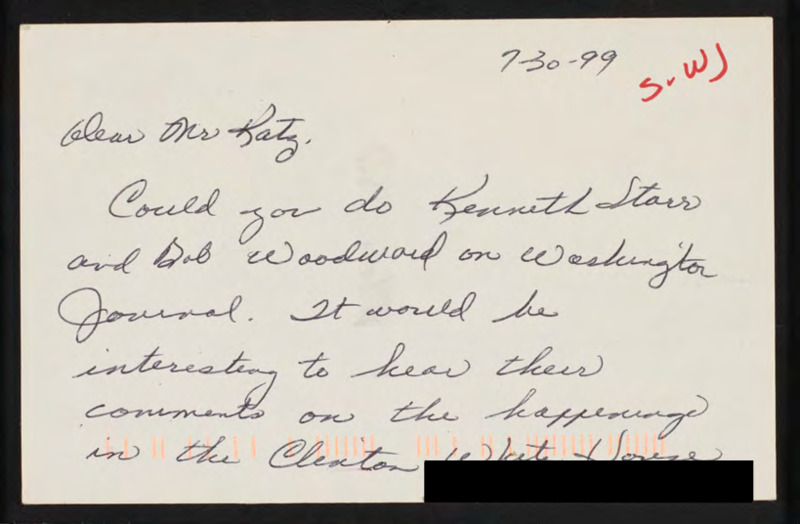 7-30-99
S. WJ
Dear Mr Katz.
Could you do Kenneth Starr
and Bob Woodward on Washington
Journal. It would be
interesting to hear their
comments on the happenings
in the Clinton White House